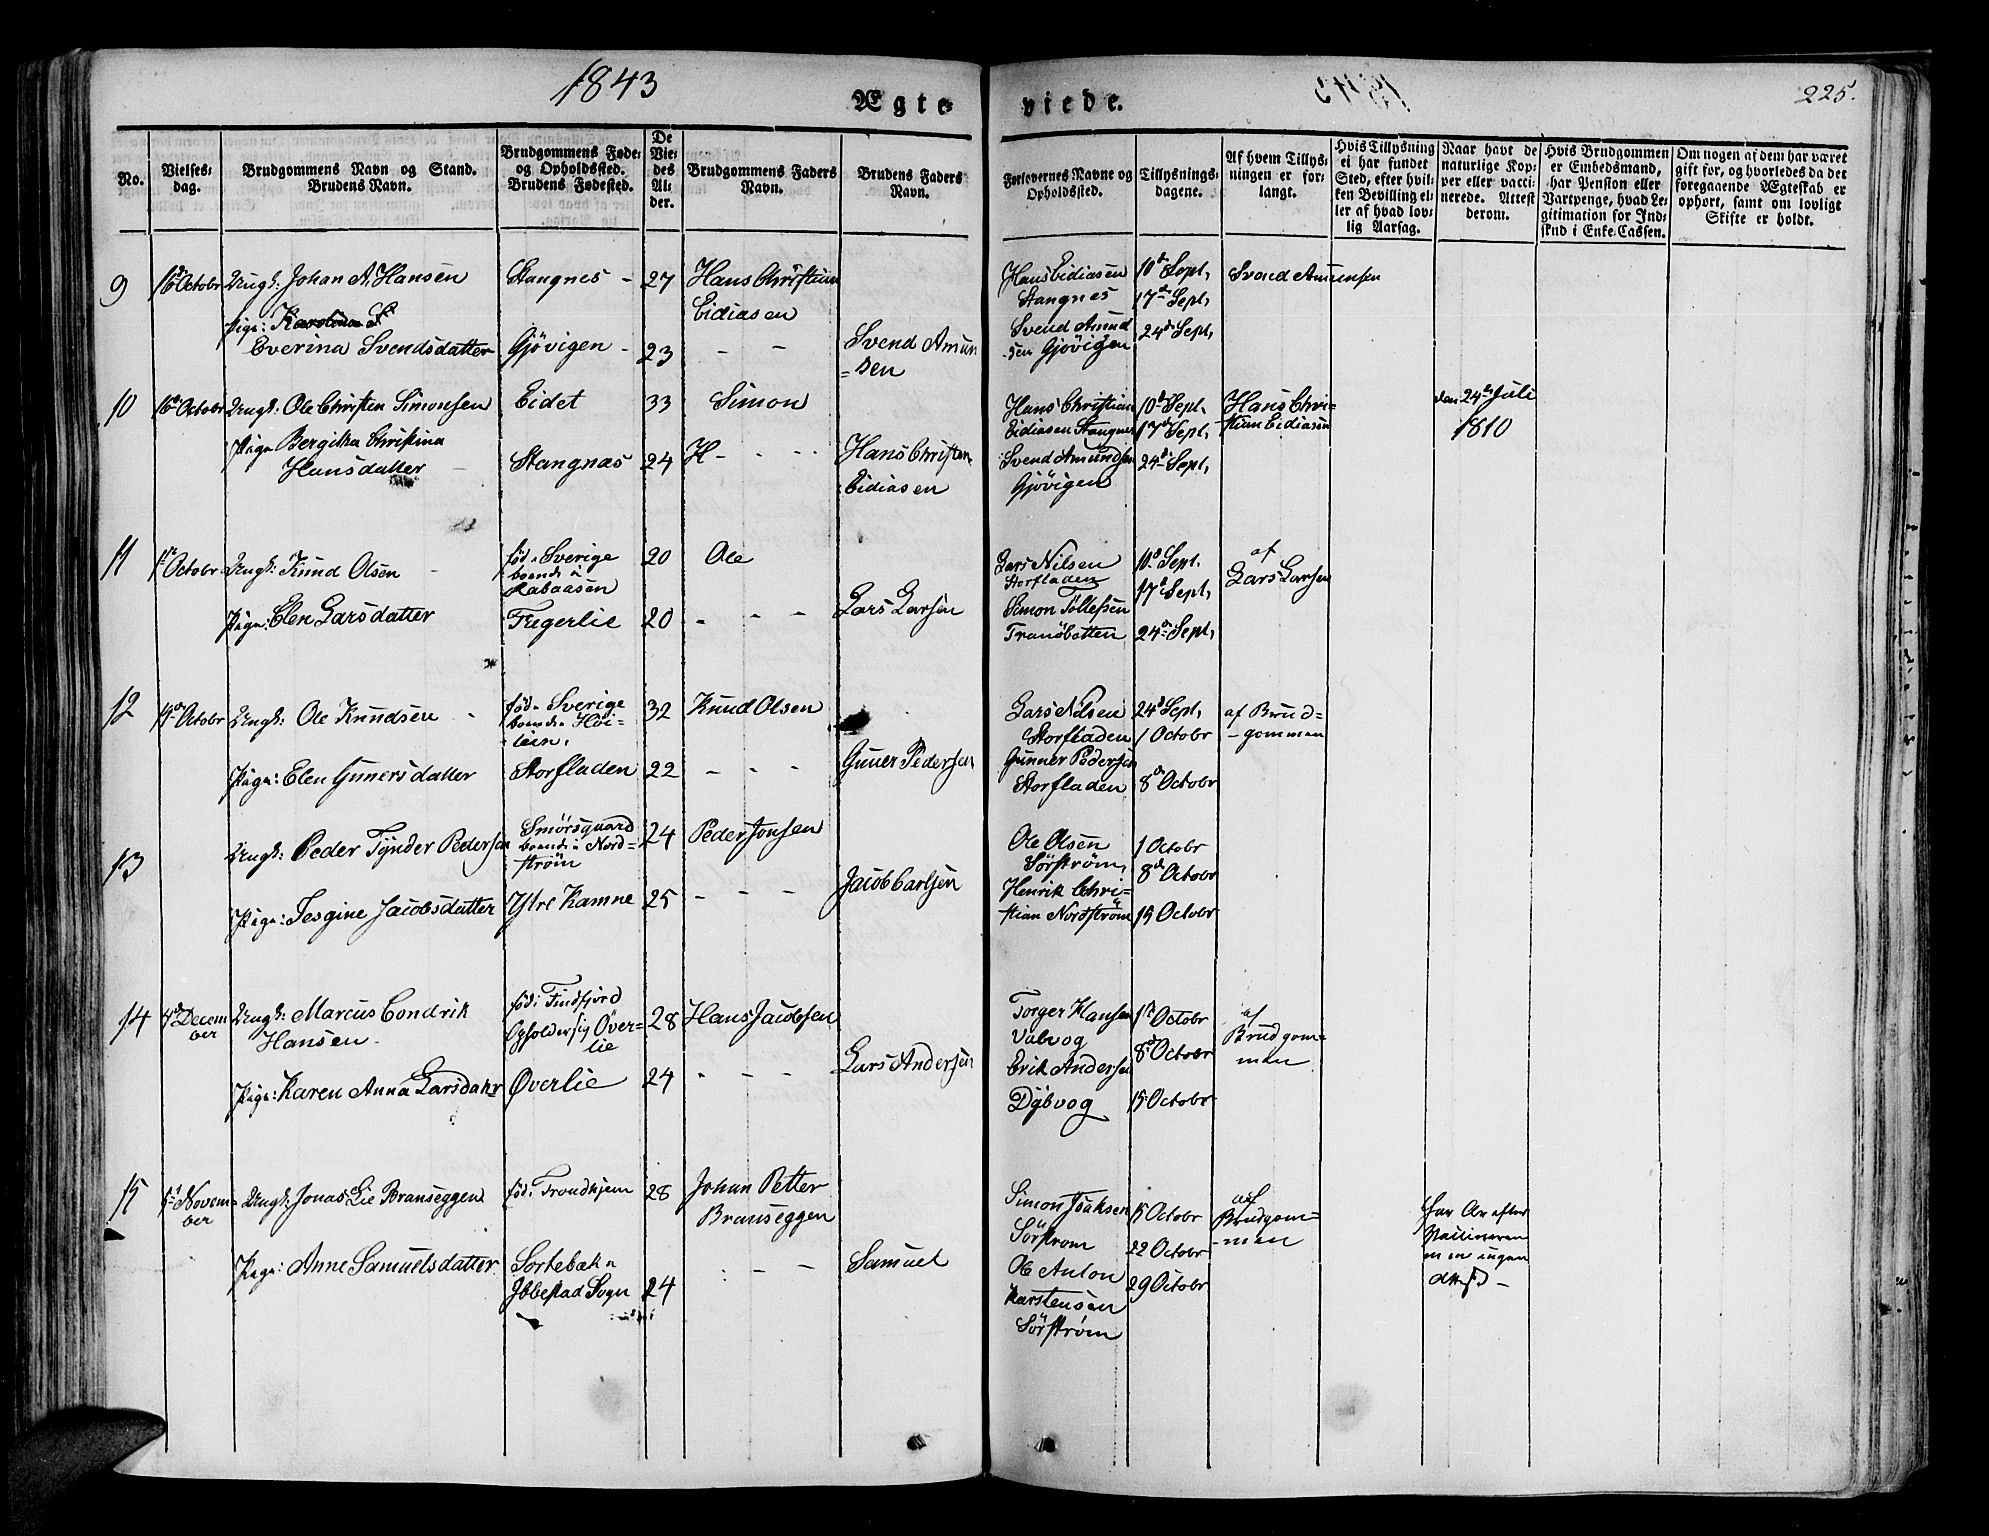 1843
Ægte-
viede.
225.
No.
Vielses-
dag.
Brudgommens Navn og Stand.
Brudens Navn.
Brudgommens Føde-
og Opholdssted.
Brudens Fødested.
De
Vie-
des
Al-
der.
Brudgommens Faders
Navn.
Brudens Faders
Navn.
Forlovernes Navne og
Opholdssted.
Tillysnings-
dagene.
Af hvem Tillys-
ningen er for-
langt.
Hvis Tillysning
ei har fundet
Sted, efter hvil-
ken Bevilling el-
ler af hvad lov-
lig Aarsag.
Naar havt de
naturlige Kop-
per eller vacci-
nerede. Attest
derom.
Hvis Brudgommen
er Embedsmand,
har Pension eller
Vartpenge, hvad Le-
gitimation for Ind-
skud i Enke-Cassen.
Om nogen af dem har været
gift før, og hvorledes da det
foregaaende Ægteskab er
ophørt, samt om lovligt
Skifte er holdt.
9
16d Octobr
Ungk: Johan A. Hansen
Pige:
Everina Svendsdatter
Stangnes -
Gjövigen -
27
23
Hans Christian
Eidiasen
- -
Svend Amun
=sen
Hans Eidiasen
Stangnes
Svend Amund
-sen Gjövigen
10d Sept,
17de Sept,
24d Sept,
Svend Amunsen
10
16d Octobr
Ungk: Ole Christen Simonsen
Pige Bergitha Christina
Hansdatter
Eidet
Stangnæs
33
24
Simon
H- - - -
Hans Christen
Eidiasen
Hans Christian
Eidiasen Stangnes
Svend Amundsen
Gjövigen
10d Sept,
17d Sept,
24d Sept,
Hans Chri=
stian Eidiasen
den 24de Juli
1810
11
Octobr
Ungk: Knud Olsen
Pige: Elen Larsdatter
föd i Sverige
boende i
Rabaasen
Fagerlie
20
20
Ole
- - -
Lars Larsen
Lars Nilsen
Storfladen
Simon Tollefsen
Tranöbotten
10d Sept.
17de Sept,
24d Sept,
af
Lars Larsen
12
Octobr
Ungk: Ole Knudsen
Pige: Elen Gunersdatter
föd i Sverige
boende Höi-
lien,
Storfladen
32
22
Knud Olsen
- - -
Guner Pedersen
Lars Nilsen
Storfladen
Gunner Pedersen
Storfladen
24d Sept,
1 Octobr
8d Octobr
af Brud=
-gommen
13
Ungk: Peder Tynder Pedersen
Pige: Jacobsdatter
Smörsguard
boende i Nord=
ström
Ytre Kamne
24
25
Peder Jonsen
- - -
Jacob Carlsen
Ole Olsen
Sörström,
Henrik Chri=
stian Nordström
1 Octobr
8d Octobr
15 Octobr
14
4d Decem
ber
Ungk: Marcus Condrik
Hansen
Pige: Karen Anna Larsdatr
föd i Findfjord
Opholder sig Över=
lie
Øverlie
28
24
Hans Jacobsen
- - -
Lars Andersen
Torger Hansen
Erik Andersen
Dybvog
1ste Octobr
8d Octobr
15 Octobr
af
Brudgom=
men
15
Novem=
ber
Ungk: Jonas Lie Branseggen
Pige: Anne Samuelsdatter
föd i Trondhjem
Sortebak i
Ibbestad Sogn
28
24
Johan Petter
Branseggen
- - -
Samuel
Simon Isaksen
Sörstrom
Ole Anton
Karstensen
Sörström
15 Octobr
22 Octobr
29 Octobr
af
Brudgom=
-men
har Ar efter
men ingen
Attest -